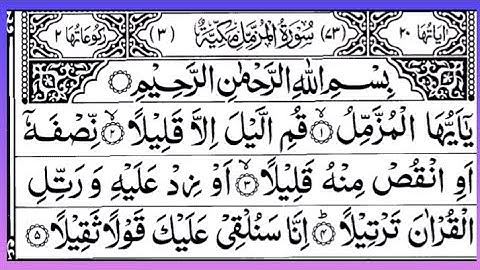 اٰیَاتُهَا ٢٠ (٧٣) سُوْرَةُ الْمُزَّمِّلِ مَكِّيَّةٌ (٣) رُكُوْعَاتُهَا ٢
بِسْمِ اللّٰهِ الرَّحْمٰنِ الرَّحِيْمِ
يٰۤاَيُّهَا الْمُزَّمِّلُ ۙ﴿١﴾ قُمِ الَّيْلَ اِلَّا قَلِيْلًا ۙ﴿٢﴾ نِّصْفَهٗۤ
اَوِ انْقُصْ مِنْهُ قَلِيْلًا ۙ﴿٣﴾ اَوْ زِدْ عَلَيْهِ وَ رَتِّلِ
الْقُرْاٰنَ تَرْتِيْلًا ؕ﴿٤﴾ اِنَّا سَنُلْقِيْ عَلَيْكَ قَوْلًا ثَقِيْلًا ﴿٥﴾